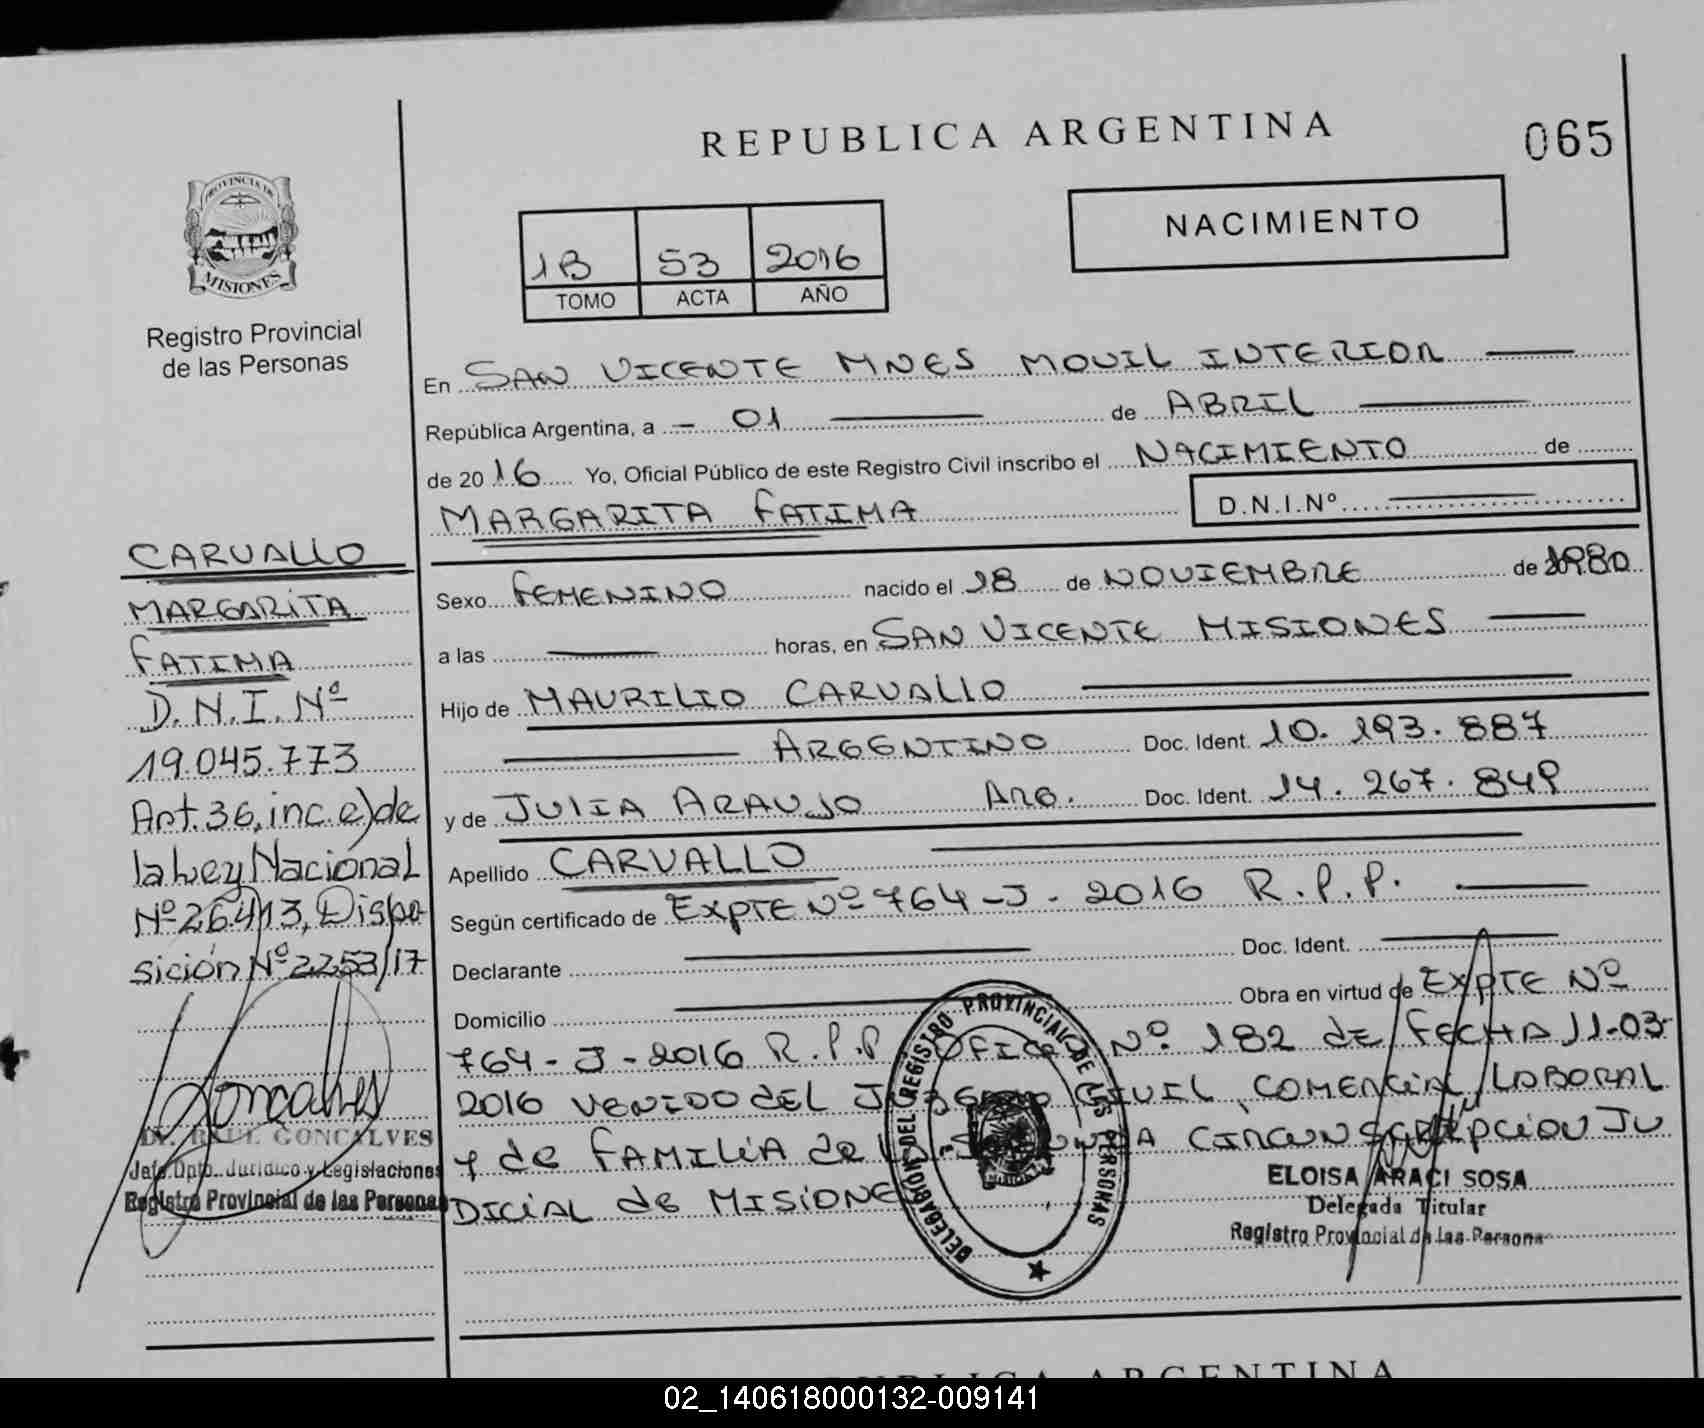 REPUBLICA ARGENTINA
065
PROVINCIA DE
MISIONES
NACIMIENTO
1B 53 2016
TOMO ACTA AÑO
Registro Provincial
de las Personas
En SAN VICENTE MNES MOVIL INTERIOR
República Argentina, a - 01 de ABRIL
de 20 16 Yo, Oficial Público de este Registro Civil inscribo el NACIMIENTO de
MARGARITA FATIMA D.N.I.Nº
CARVALLO
MARGARITA
FATIMA
D.N.I. Nº
19.045.773
Art.36,inc.e)de
la Ley Nacional
Nº26.413, Dispo-
sición Nº2253/17
Sexo FEMENINO nacido el 18 de NOVIEMBRE de 1980
a las horas, en SAN VICENTE MISIONES
Hijo de MAURILIO CARVALLO
ARGENTINO Doc. Ident. 10. 193. 887
y de JULIA ARAUJO ARG. Doc. Ident. 14. 267. 849
Apellido CARVALLO
Según certificado de EXPTE Nº 764-J-2016 R.P.P.
Declarante Doc. Ident.
Domicilio Obra en virtud de EXPTE Nº
764-J-2016 R.P.P OFICIO Nº 182 de FECHA 11-03-
2016 VENIDO DEL JUZGADO CIVIL, COMERCIAL, LABORAL
Y de FAMILIA de LA SEGUNDA CIRCUNSCRIPCION JU
DICIAL de MISIONES
DELEGACIÓN DEL REGISTRO PROVINCIAL DE LAS PERSONAS
Goncalves
Dr. RAUL GONCALVES
Jefe Dpto. Jurídico y Legislaciones
Registro Provincial de las Personas
ELOISA ARACI SOSA
Delegada Titular
Registro Provincial de las Persona
REPUBLICA ARGENTINA
02_140618000132-009141